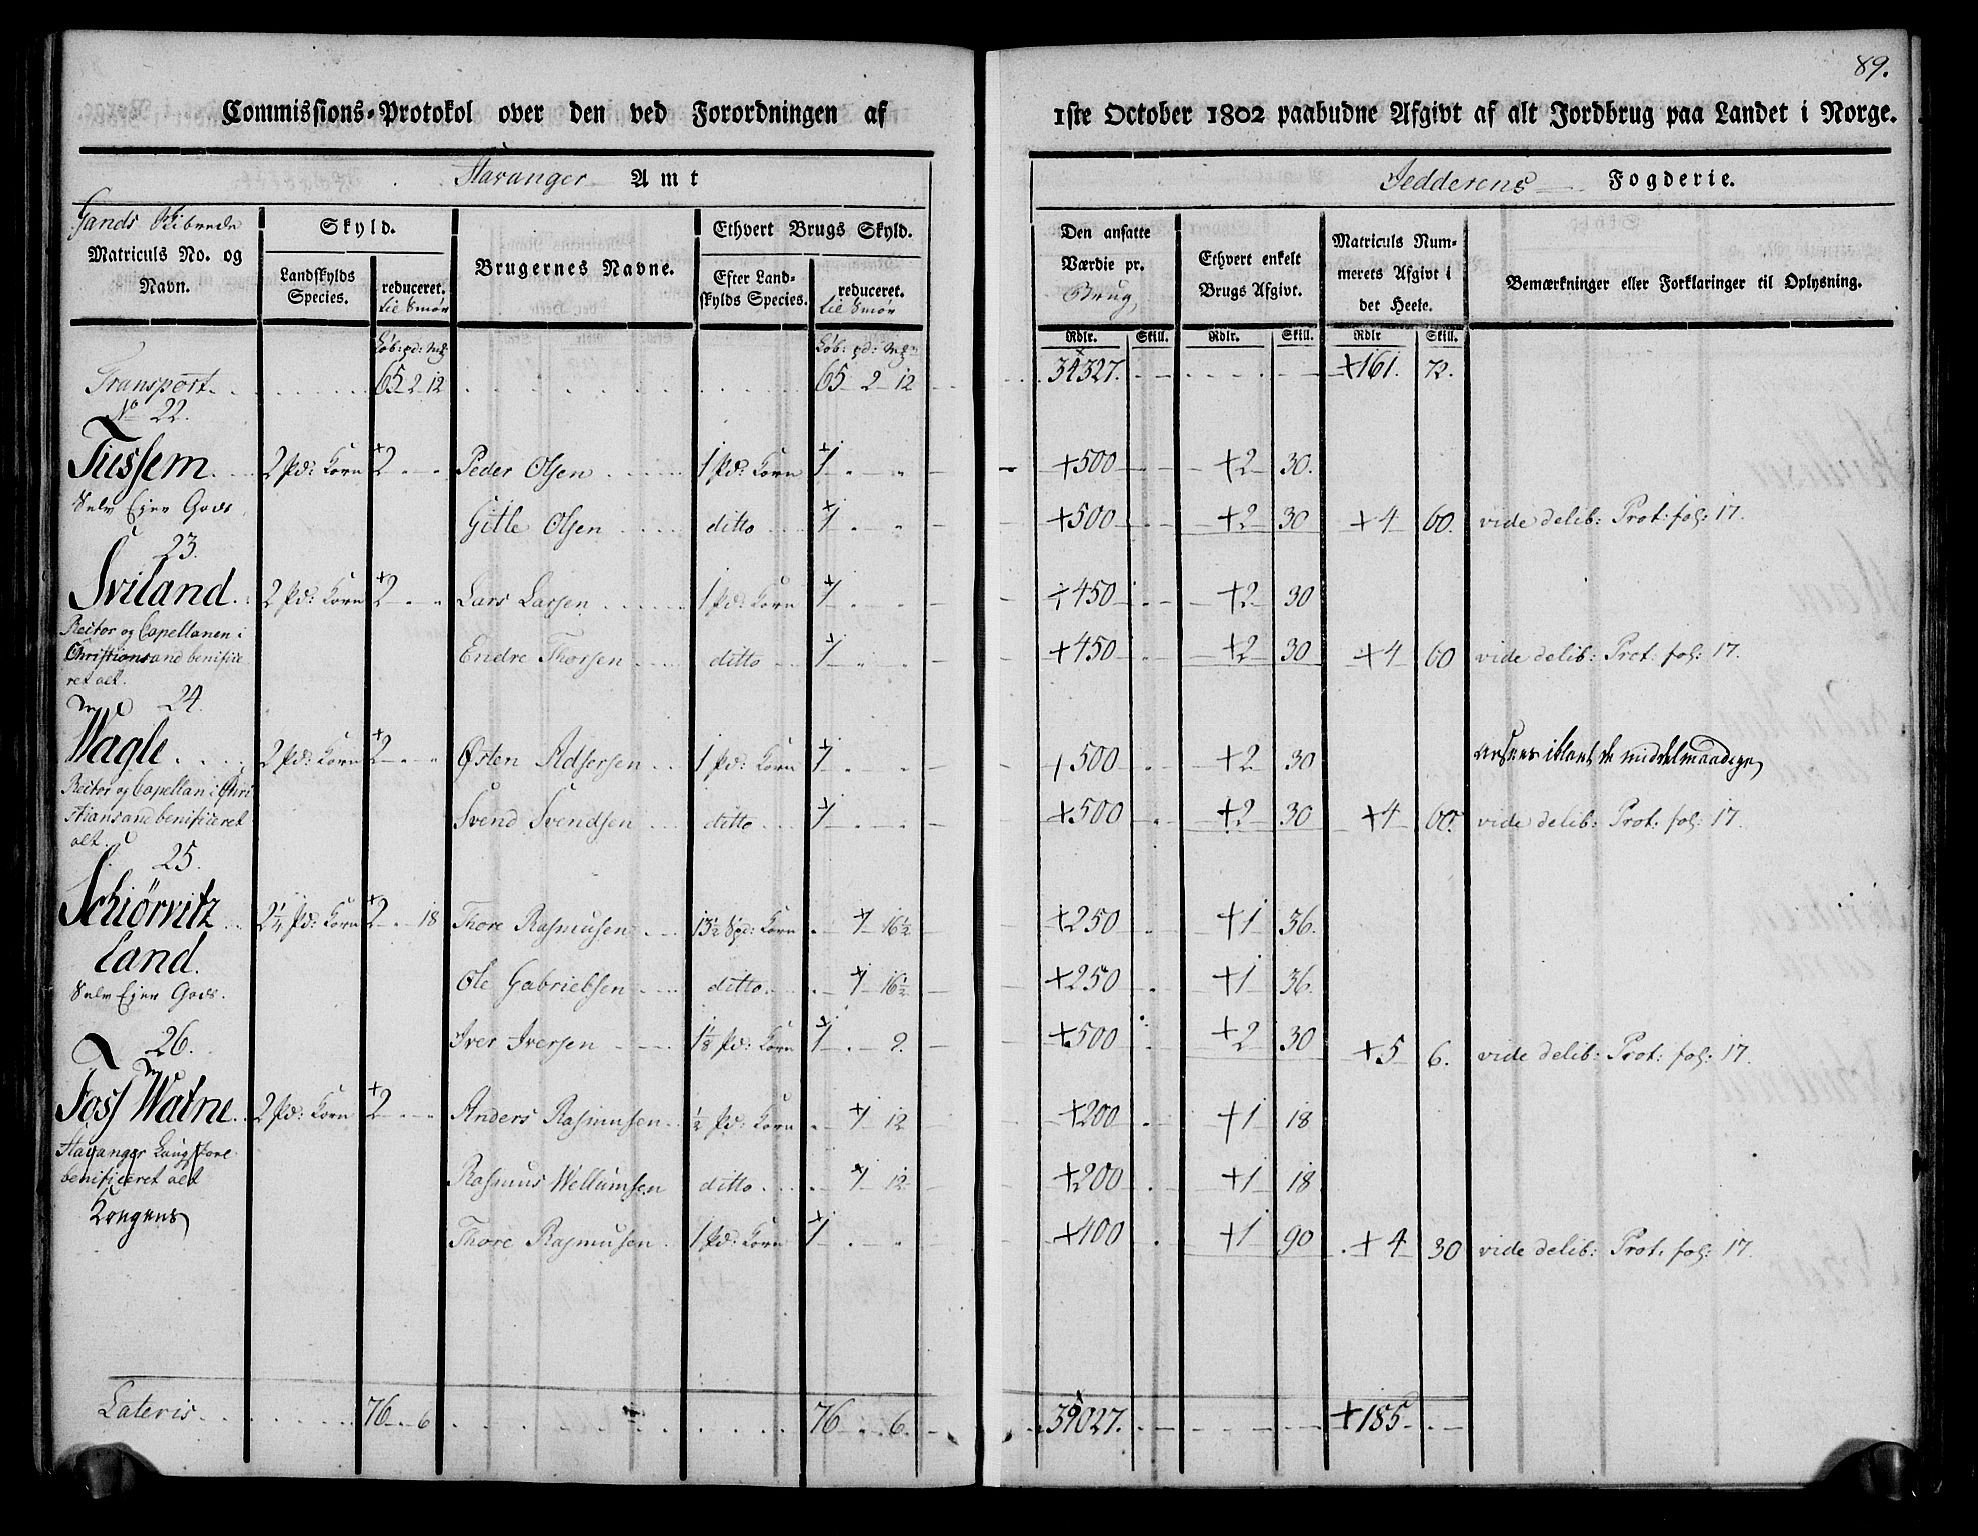 89.
Commissions-Protokol over den ved Forordningen af 1ste October 1802 paabudne Afgivt af alt Jordbrug paa Landet i Norge.
Stavanger Amt Jedderens Fogderie.
Gands Skibrede
Matriculs No. og Navn.
Skyld.
Landskylds Species.
reduceret. til Smör
Brugernes Navne.
Ethvert Brugs Skyld.
Efter Landskylds Species.
reduceret. til Smör
Den ansatte Værdie pr. Brug
Ethvert enkelt Brugs Afgivt.
Matriculs Nummerets Afgivt i det Heele.
Bemærkninger eller Forklaringer til Oplysning.
Löb: pd: mk: Löb: pd: mk: Rdlr. Skill. Rdlr. Skill. Rdlr Skill.
Transport 65 2 12 65 2 12 34327. +161. 72.
No 22.
Tussem 2 Pd: Korn +2 Peder Olsen 1 Pd: Korn +1 +500 +2 30.
Selv Ejer Gods Gitle Olsen ditto +1 +500 +2 30 +4 60. vide delib: Prot: fol: 17.
23.
Sviland 2 Pd: Korn +2 Lars Larsen 1 Pd: Korn +1 +450 +2 30
Rector og Capellanen i
Christiansand benifice Endre Thorsen ditto +1 +450 +2 30 +4 60 vide delib: Prot: fol: 17.
ret alt.
24.
Wagle 2 Pd: Korn +2 Østen Adsersen 1 Pd: Korn +1 +500 +2 30 iblant de middelmaadige
Rector og Capellan i Chri
stiansand benificeret Svend Svendsen ditto +1 +500 +2 30 +4 60. vide delib: Prot: fol: 17.
alt.
25.
Schiörvitz 2¼ Pd: Korn +2 18 Thore Rasmusen 13½ Spd: Korn +1 16½ +250 +1 36.
Land.
Selv Ejer Gods. Ole Gabrielsen ditto +1 16½ +250 +1 36.
Iver Iversen 1⅛ Pd: Korn +1 9. +500 +2 30 +5 6. vide delib: Prot: fol: 17.
26.
Foss Watne 2 Pd: Korn +2 Anders Rasmusen ½ Pd: Korn +1 12 +200 +1 18
Stavanger
benificeret alt Rasmus Wellumsen ditto +1 12 +200 +1 18
Kongens
Thore Rasmusen 1 Pd: Korn +1 +400 +1 90 +4 30 vide delib: Prot: fol: 17.
Lateris 76 6 76 6. 39027. +185